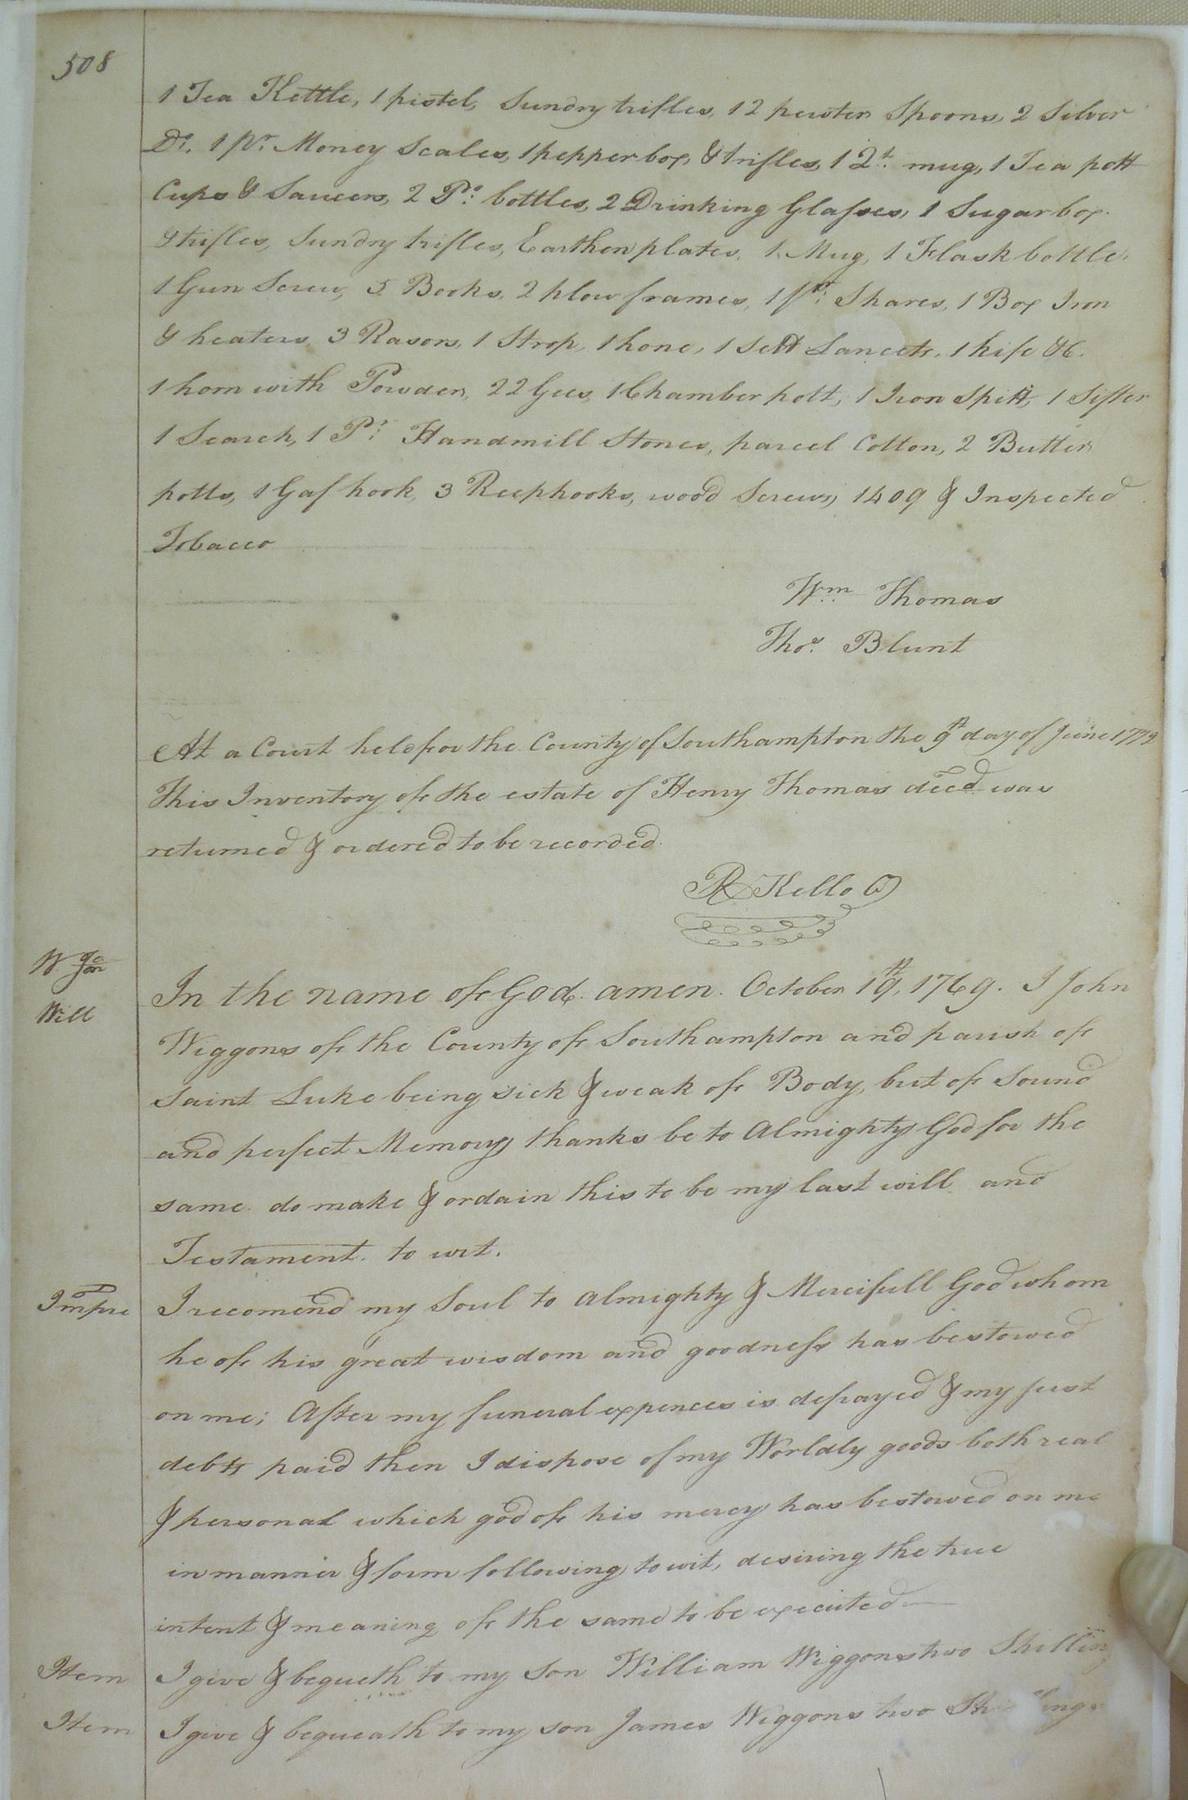 508
1 Tea Kettle, 1 pistol, Sundry trifles, 12 pewter Spoons, 2 Silver
Do. 1 pr. Money Scales, 1 pepper box, & trifles, 1 Qt. mug, 1 Tea pott
Cups & Saucers, 2 Pt. bottles, 2 Drinking Glasses, 1 Sugar box.
& trifles, Sundry trifles, Earthen plates, 1 Mug, 1 Flask bottle,
1 Gun Screw, 5 Books, 2 plow frames, 1 pr. Shares, 1 Box Iron
& heaters, 3 Rasors, 1 Strop, 1 hone, 1 Sett Lancets, &c.
1 horn with Powder, 22 Gees, 1 Chamber pott, 1 Iron Spitt, 1 Sifter
1 Search, 1 Pr. Handmill Stones, parcel Cotton, 2 Butter
potts, 1 Gaf hook, 3 Reephooks, wood Screws, 1409 Inspected
Tobacco
Wm Thomas
Thos. Blunt
At a Court held for the County of Southampton the 9th day of June
This Inventory of the estate of Henry Thomas decd was
returned & ordered to be recorded
R Kello
W
Will
In the name of God amen. October 19th, 1769. I John
Wiggons of the County of Southampton and parish of
Saint Luke being sick & weak of Body, but of Sound
and perfect Memory thanks be to Almighty God for the
same do make & ordain this to be my last will and
Testament. to wit.
Impre
I recomend my Soul to almighty & Mercifull God whom
he of his great wisdom and goodness has bestowed
on me; After my funeral expences is defrayed & my just
debts paid then I dispose of my Worldly goods both real
& personal which god of his mercy has bestowed on me
in manner & form following, to wit, desiring the true
intent & meaning of the same to be executed
Item
I give & bequeth to my Son William Wiggons two Shilling
Item
I give & bequeath to my son James Wiggons two